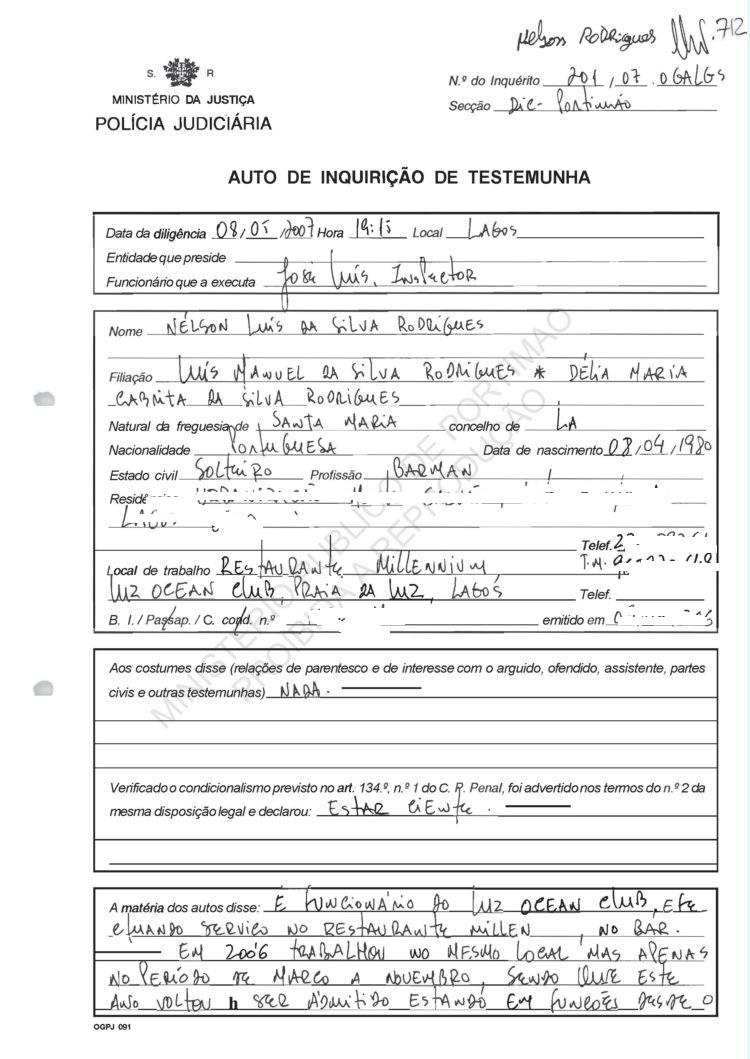 Nelson Rodrigues 712
S. R.
MINISTÉRIO DA JUSTIÇA
POLÍCIA JUDICIÁRIA
N.º do Inquérito 201 / 07 . 0 GALGS
Secção DIC - Portimão
AUTO DE INQUIRIÇÃO DE TESTEMUNHA
Data da diligência 08 / 05 / 2007 Hora 19:15 Local LAGOS
Entidade que preside
Funcionário que a executa José Luís, Inspector
Nome NÉLSON LUÍS DA SILVA RODRIGUES
Filiação LUÍS MANUEL DA SILVA RODRIGUES * DÉLIA MARIA
CABRITA DA SILVA RODRIGUES
Natural da freguesia de SANTA MARIA concelho de LA
Nacionalidade PORTUGUESA Data de nascimento 08 / 04 / 1980
Estado civil SOLTEIRO Profissão BARMAN
Residê
Telef.
T.M.
Local de trabalho RESTAURANTE MILLENNIUM
LUZ OCEAN CLUB, PRAIA DA LUZ, LAGOS Telef.
B. I. / Passap. / C. cond. n.º emitido em
Aos costumes disse (relações de parentesco e de interesse com o arguido, ofendido, assistente, partes
civis e outras testemunhas) NADA.
Verificado o condicionalismo previsto no art. 134.º, n.º 1 do C. P. Penal, foi advertido nos termos do n.º 2 da
mesma disposição legal e declarou: ESTAR CIENTE.
A matéria dos autos disse: É FUNCIONÁRIO DO LUZ OCEAN CLUB, EFE
CTUANDO SERVIÇO NO RESTAURANTE MILLEN, NO BAR.
EM 2006 TRABALHOU NO MESMO LOCAL MAS APENAS
NO PERÍODO DE MARÇO A NOVEMBRO, SENDO QUE ESTE
ANO VOLTOU A SER ADMITIDO ESTANDO EM FUNÇÕES DESDE O
OGPJ 091
MINISTÉRIO PUBLICO DE PORTIMAO
PROIBIDA A REPRODUÇÃO